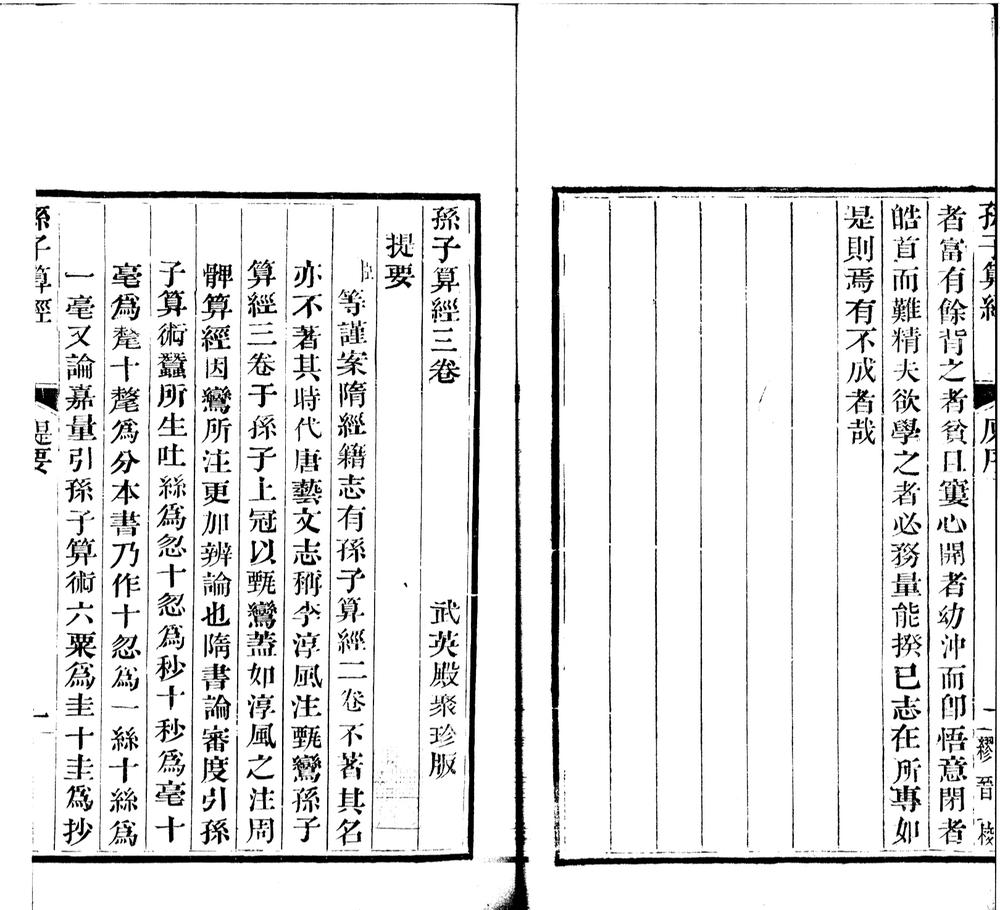 孫子算經
原序
一
繆晉校
者富有餘背之者貧且窶心開者幼沖而卽悟意閉者
皓首而難精夫欲學之者必務量能揆已志在所專如
是則焉有不成者哉
孫子算經三卷 武英殿聚珍版
提要
臣等謹案隋經籍志有孫子算經二卷不著其名
亦不著其時代唐藝文志稱李淳風注甄鸞孫子
算經三卷于孫子上冠以甄鸞蓋如淳風之注周
髀算經因鸞所注更加辨論也隋書論審度引孫
子算術蠶所生吐絲爲忽十忽爲秒十秒爲毫十
毫爲氂十氂爲分本書乃作十忽爲一絲十絲爲
一毫又論嘉量引孫子算術六粟爲圭十圭爲抄
孫子算經
提要
一